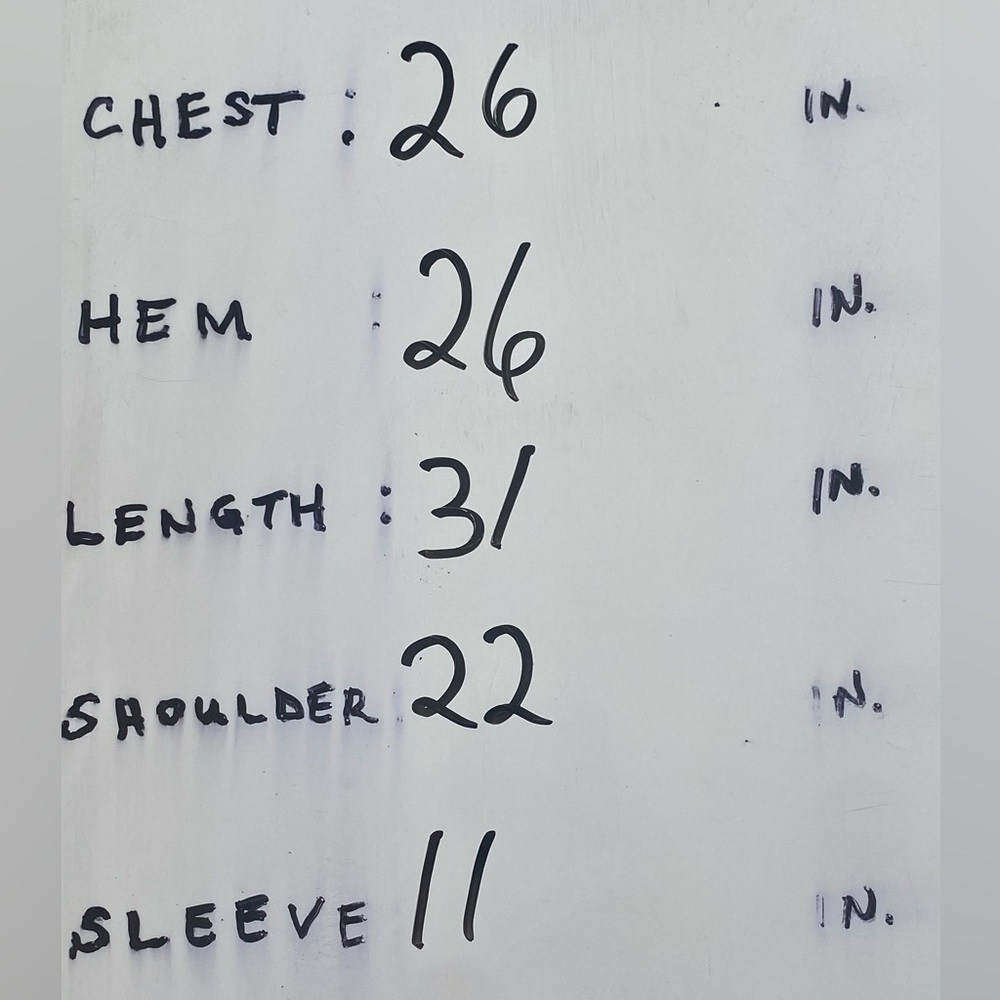 CHEST : 26 IN.
HEM : 26 IN.
LENGTH : 31 IN.
SHOULDER : 22 IN.
SLEEVE 11 IN.